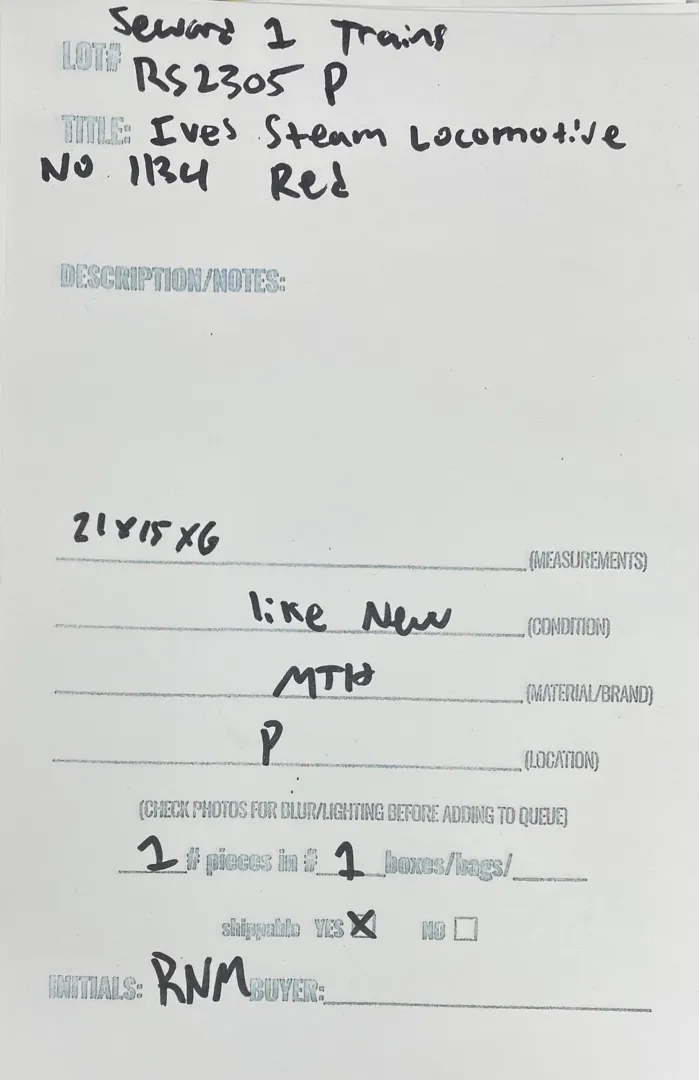 Seward 1 Trains
LOT# RS2305 P
TITLE: Ives Steam Locomotive
No. 1134 Red
DESCRIPTION/NOTES:
21x15x6 (MEASUREMENTS)
like New (CONDITION)
MTH (MATERIAL/BRAND)
P (LOCATION)
(CHECK PHOTOS FOR BLUR/LIGHTING BEFORE ADDING TO QUEUE)
1 # pieces in # 1 boxes/bags/
shippable YES X NO
INITIALS: RNM BUYER: